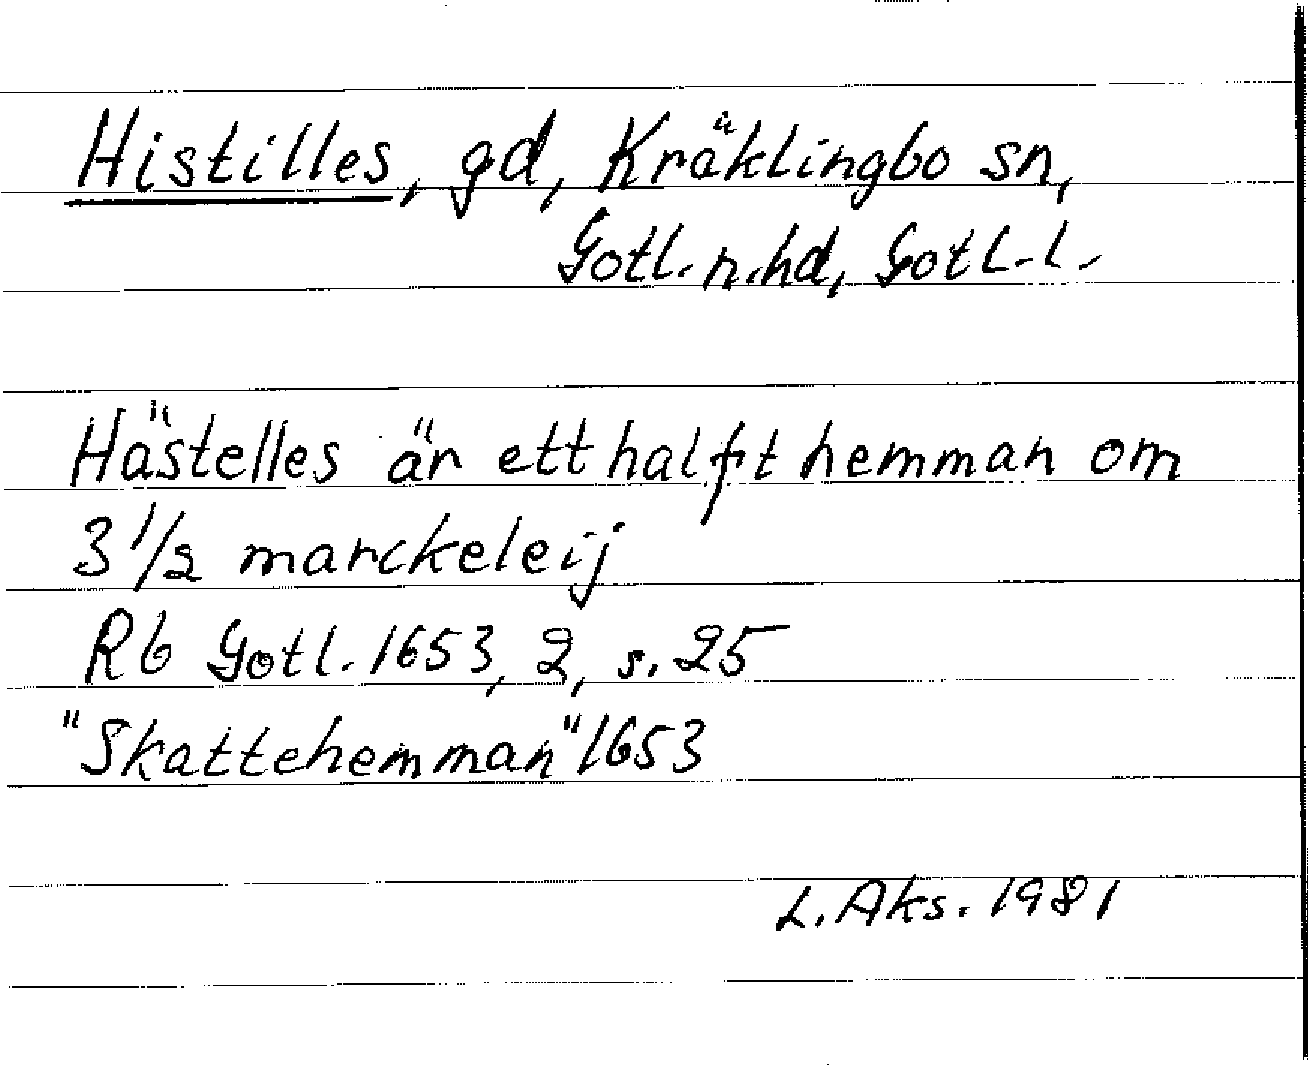 Histilles, gd, Kräklingbo sn,
Gotl. n. hd, Gotl. l.
Hästelles är ett halft hemman om
3 1/2 marckeleij
Rb Gotl. 1653, 2, s. 25
"Skattehemman" 1653
L. Aks. 1981